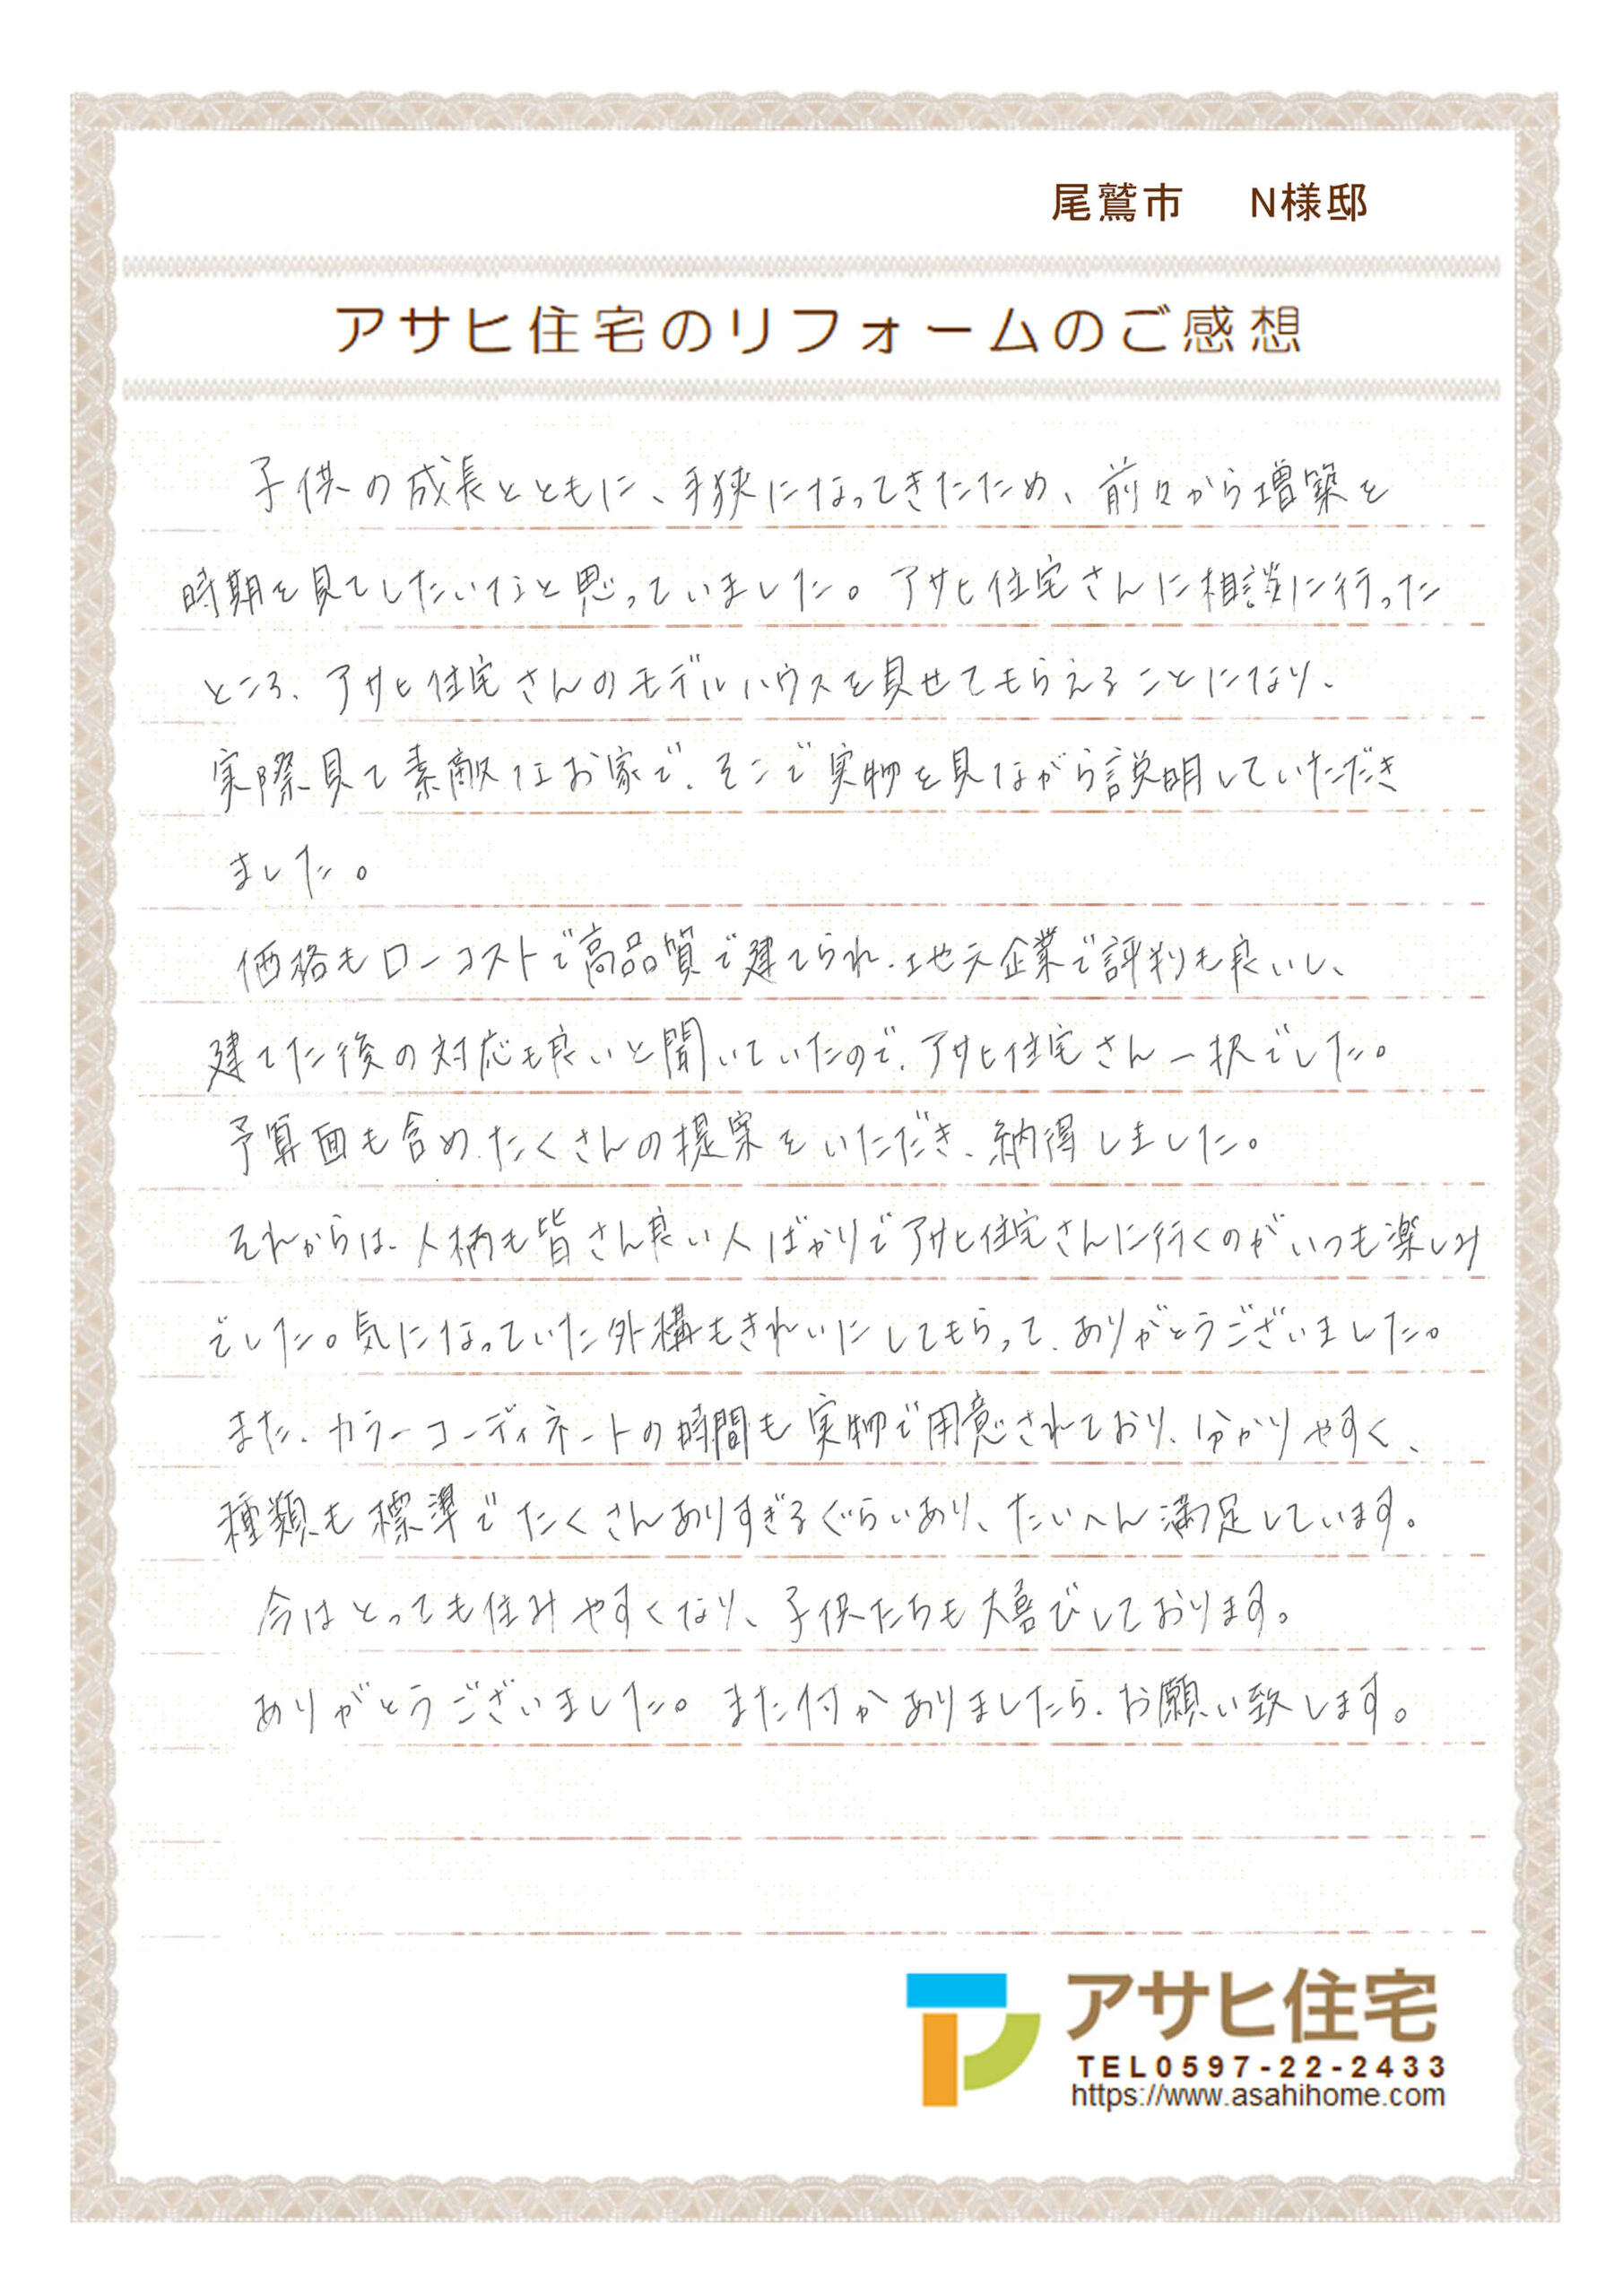 尾鷲市 N様邸
アサヒ住宅のリフォームのご感想
子供の成長とともに、手狭になってきたため、前々から増築を
時期を見てしたいなと思っていました。アサヒ住宅さんに相談に行った
ところ、アサヒ住宅さんのモデルハウスを見せてもらえることになり、
実際見て素敵なお家で、そこで実物を見ながら説明していただき
ました。
価格もローコストで高品質で建てられ、地元企業で評判も良いし、
建てた後の対応も良いと聞いていたので、アサヒ住宅さん一択でした。
予算面も含め、たくさんの提案をいただき、納得しました。
それからは、人柄も皆さん良い人ばかりでアサヒ住宅さんに行くのがいつも楽しみ
でした。気になっていた外構もきれいにしてもらって、ありがとうございました。
また、カラーコーディネートの時間も実物で用意されており、分かりやすく、
種類も標準でたくさんありすぎるぐらいあり、たいへん満足しています。
今はとっても住みやすくなり、子供たちも大喜びしております。
ありがとうございました。また何かありましたら、お願い致します。
アサヒ住宅
TEL0597-22-2433
https://www.asahihome.com